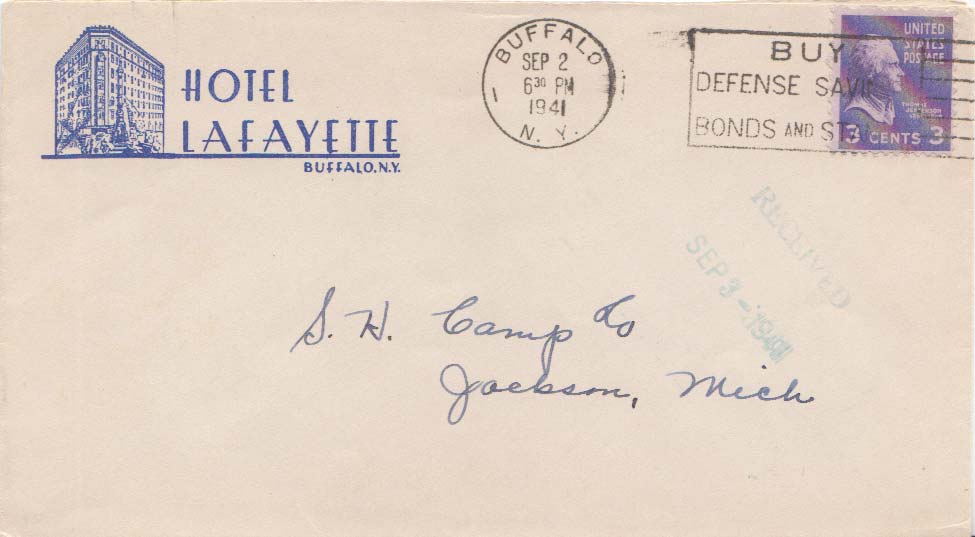 HOTEL
LAFAYETTE
BUFFALO, N.Y.
BUFFALO
SEP 2
6 30 PM
1941
N. Y.
1
BUY
DEFENSE SAVIN
BONDS AND ST
UNITED
STATES
POSTAGE
THOMAS
JEFFERSON
3 CENTS 3
RECEIVED
SEP 3 - 1941
S. H. Camp Co
Jackson, Mich